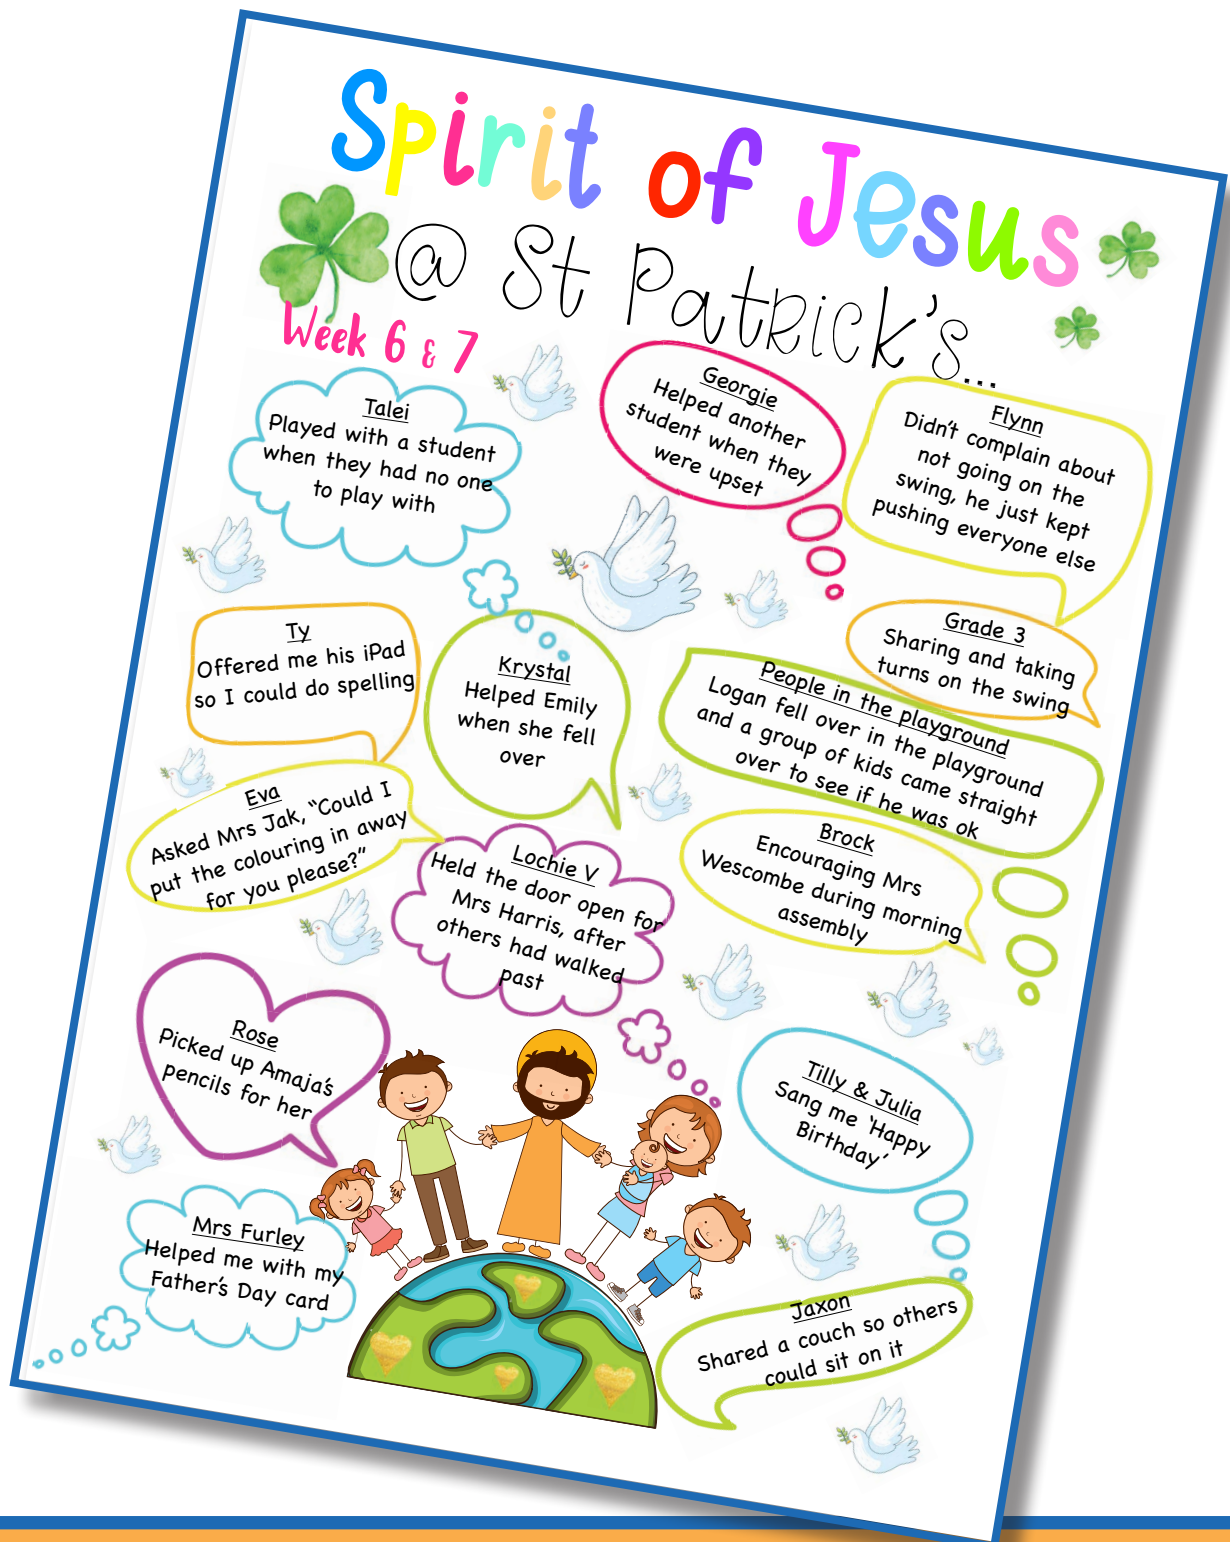 Spirit of Jesus
@ St Patrick's...
Week 6 & 7
Talei
Played with a student
when they had no one
to play with
Georgie
Helped another
student when they
were upset
Flynn
Didn't complain about
not going on the
swing, he just kept
pushing everyone else
Ty
Offered me his iPad
so I could do spelling
Krystal
Helped Emily
when she fell
over
Grade 3
Sharing and taking
turns on the swing
People in the playground
Logan fell over in the playground
and a group of kids came straight
over to see if he was ok
Eva
Asked Mrs Jak, "Could I
put the colouring in away
for you please?"
Lochie V
Held the door open for
Mrs Harris, after
others had walked
past
Brock
Encouraging Mrs
Wescombe during morning
assembly
Rose
Picked up Amaja's
pencils for her
Tilly & Julia
Sang me 'Happy
Birthday'
Mrs Furley
Helped me with my
Father's Day card
Jaxon
Shared a couch so others
could sit on it